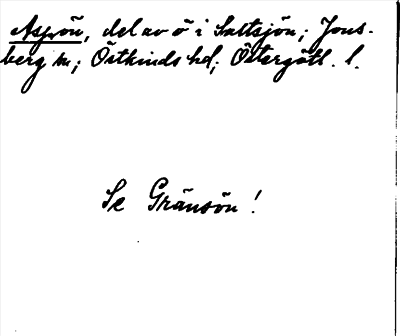 Asprön, del av ö i Saltsjön; Jons-
berg sn; Östkinds hd; Östergötl. l.
Se Gränsön!